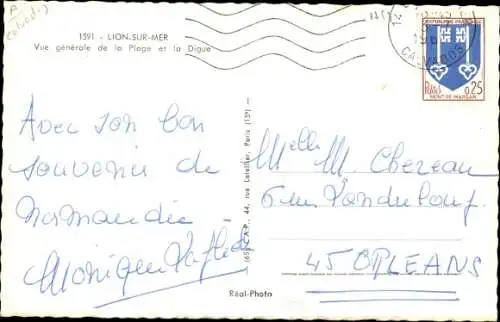 A
1591 - LION-SUR-MER
Vue générale de la Plage et la Digue
RÉPUBLIQUE FRANÇAISE
CALVADOS
0,25
MONT-DE-MARSAN
Avec son bon
souvenir de
Normandie
Monique
(65) C.A.P., 44, rue Letellier, Paris (15e)
Melle M. Chereau
6 rue Vandebourg
45 ORLEANS
Réal-Photo